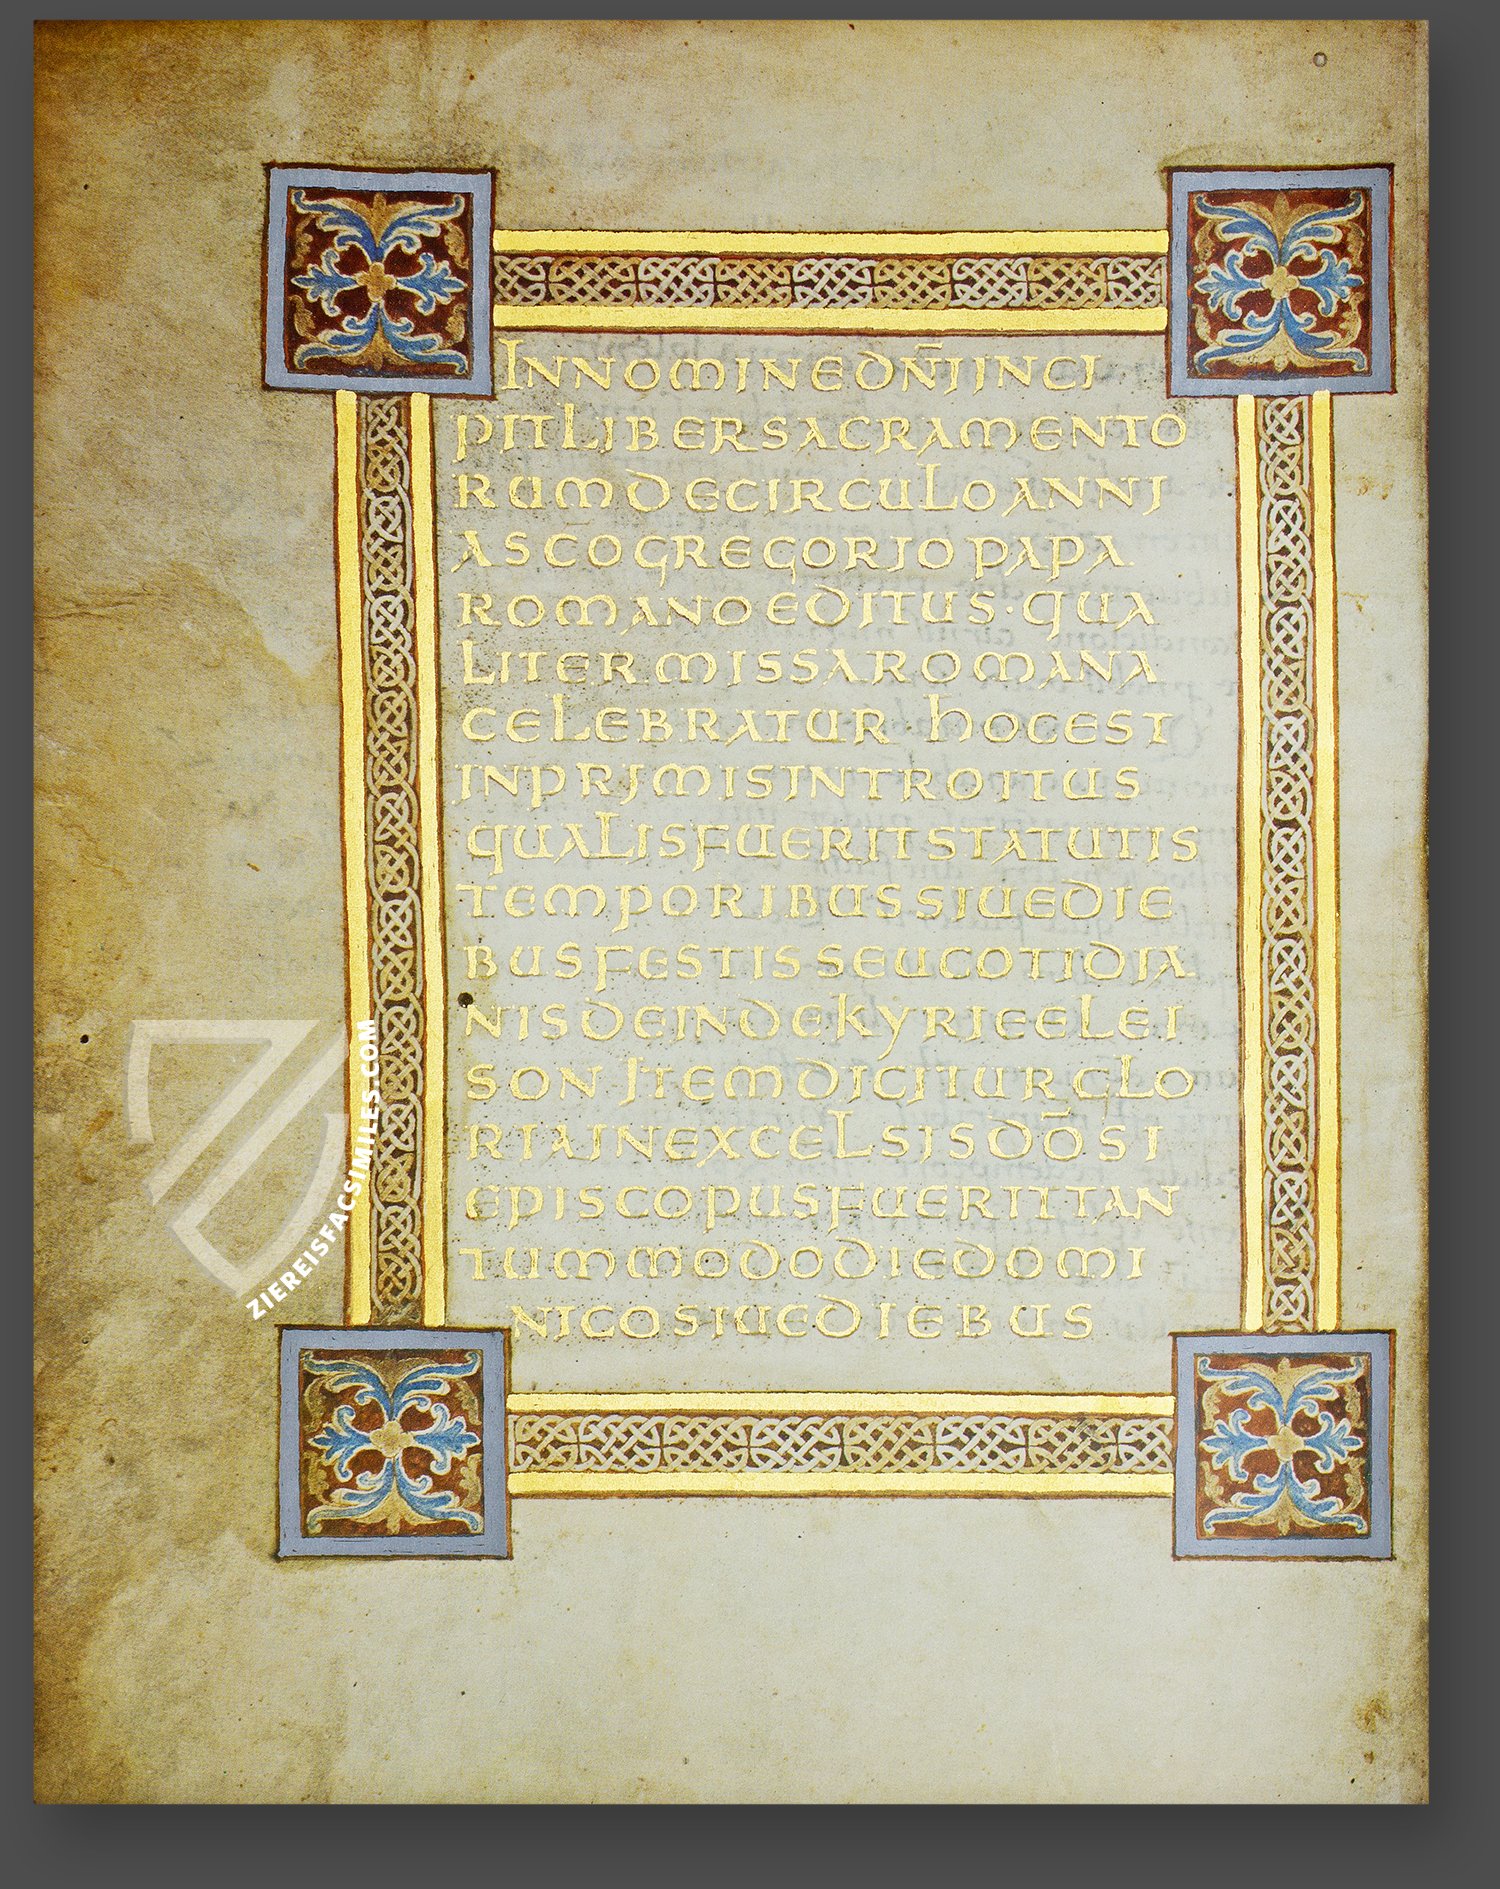 INNOMINEDN̄IINCI
PITLIBERSACRAMENTO
RUMDECIRCULOANNI
ASCOGREGORIOPAPA
ROMANOEDITUS·QUA
LITERMISSAROMANA
CELEBRATUR HOCEST
INPRIMISINTROITUS
QUALISFUERITSTATUTIS
TEMPORIBUSSIUEDIE
BUSFESTISSEUCOTIDIA
NISDEINDEKYRIEELEI
SON ITEMDICITURGLO
RIAINEXCELSISDŌSI
EPISCOPUSFUERITTAN
TUMMODODIEDOMI
NICOSIUEDIEBUS
ZIEREISFACSIMILES.COM